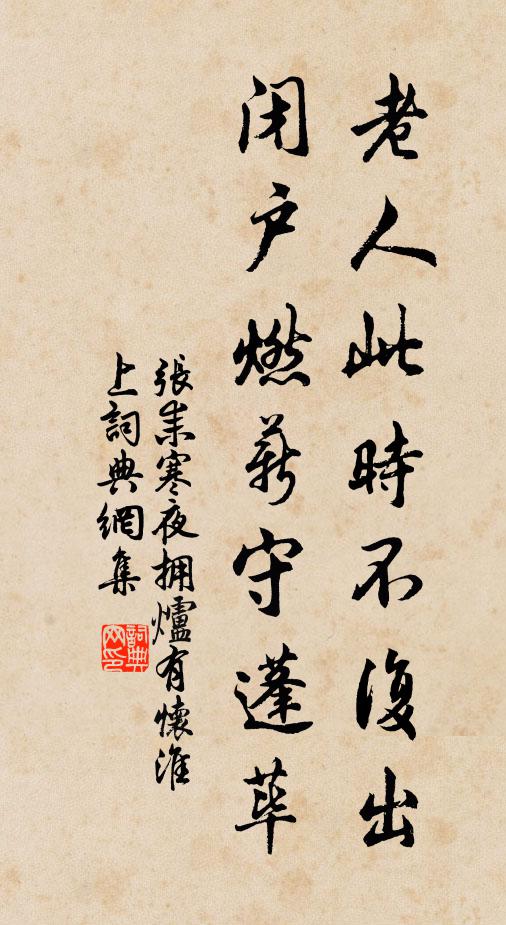 老人此時不復出
闭户燃薪守蓬荜
張耒寒夜拥爐有懷淮
上詞典網集
詞典网印